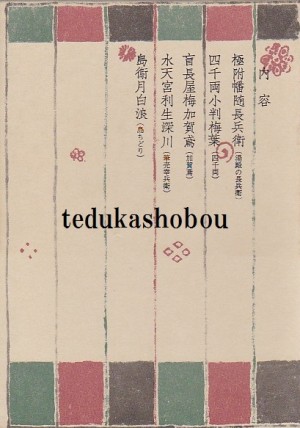 内容
極附幡随長兵衛(湯殿の長兵衛)
四千両小判梅葉(四千両)
盲長屋梅加賀鳶(加賀鳶)
水天宮利生深川(筆売幸兵衛)
島衛月白浪(島ちどり)
tedukashobou